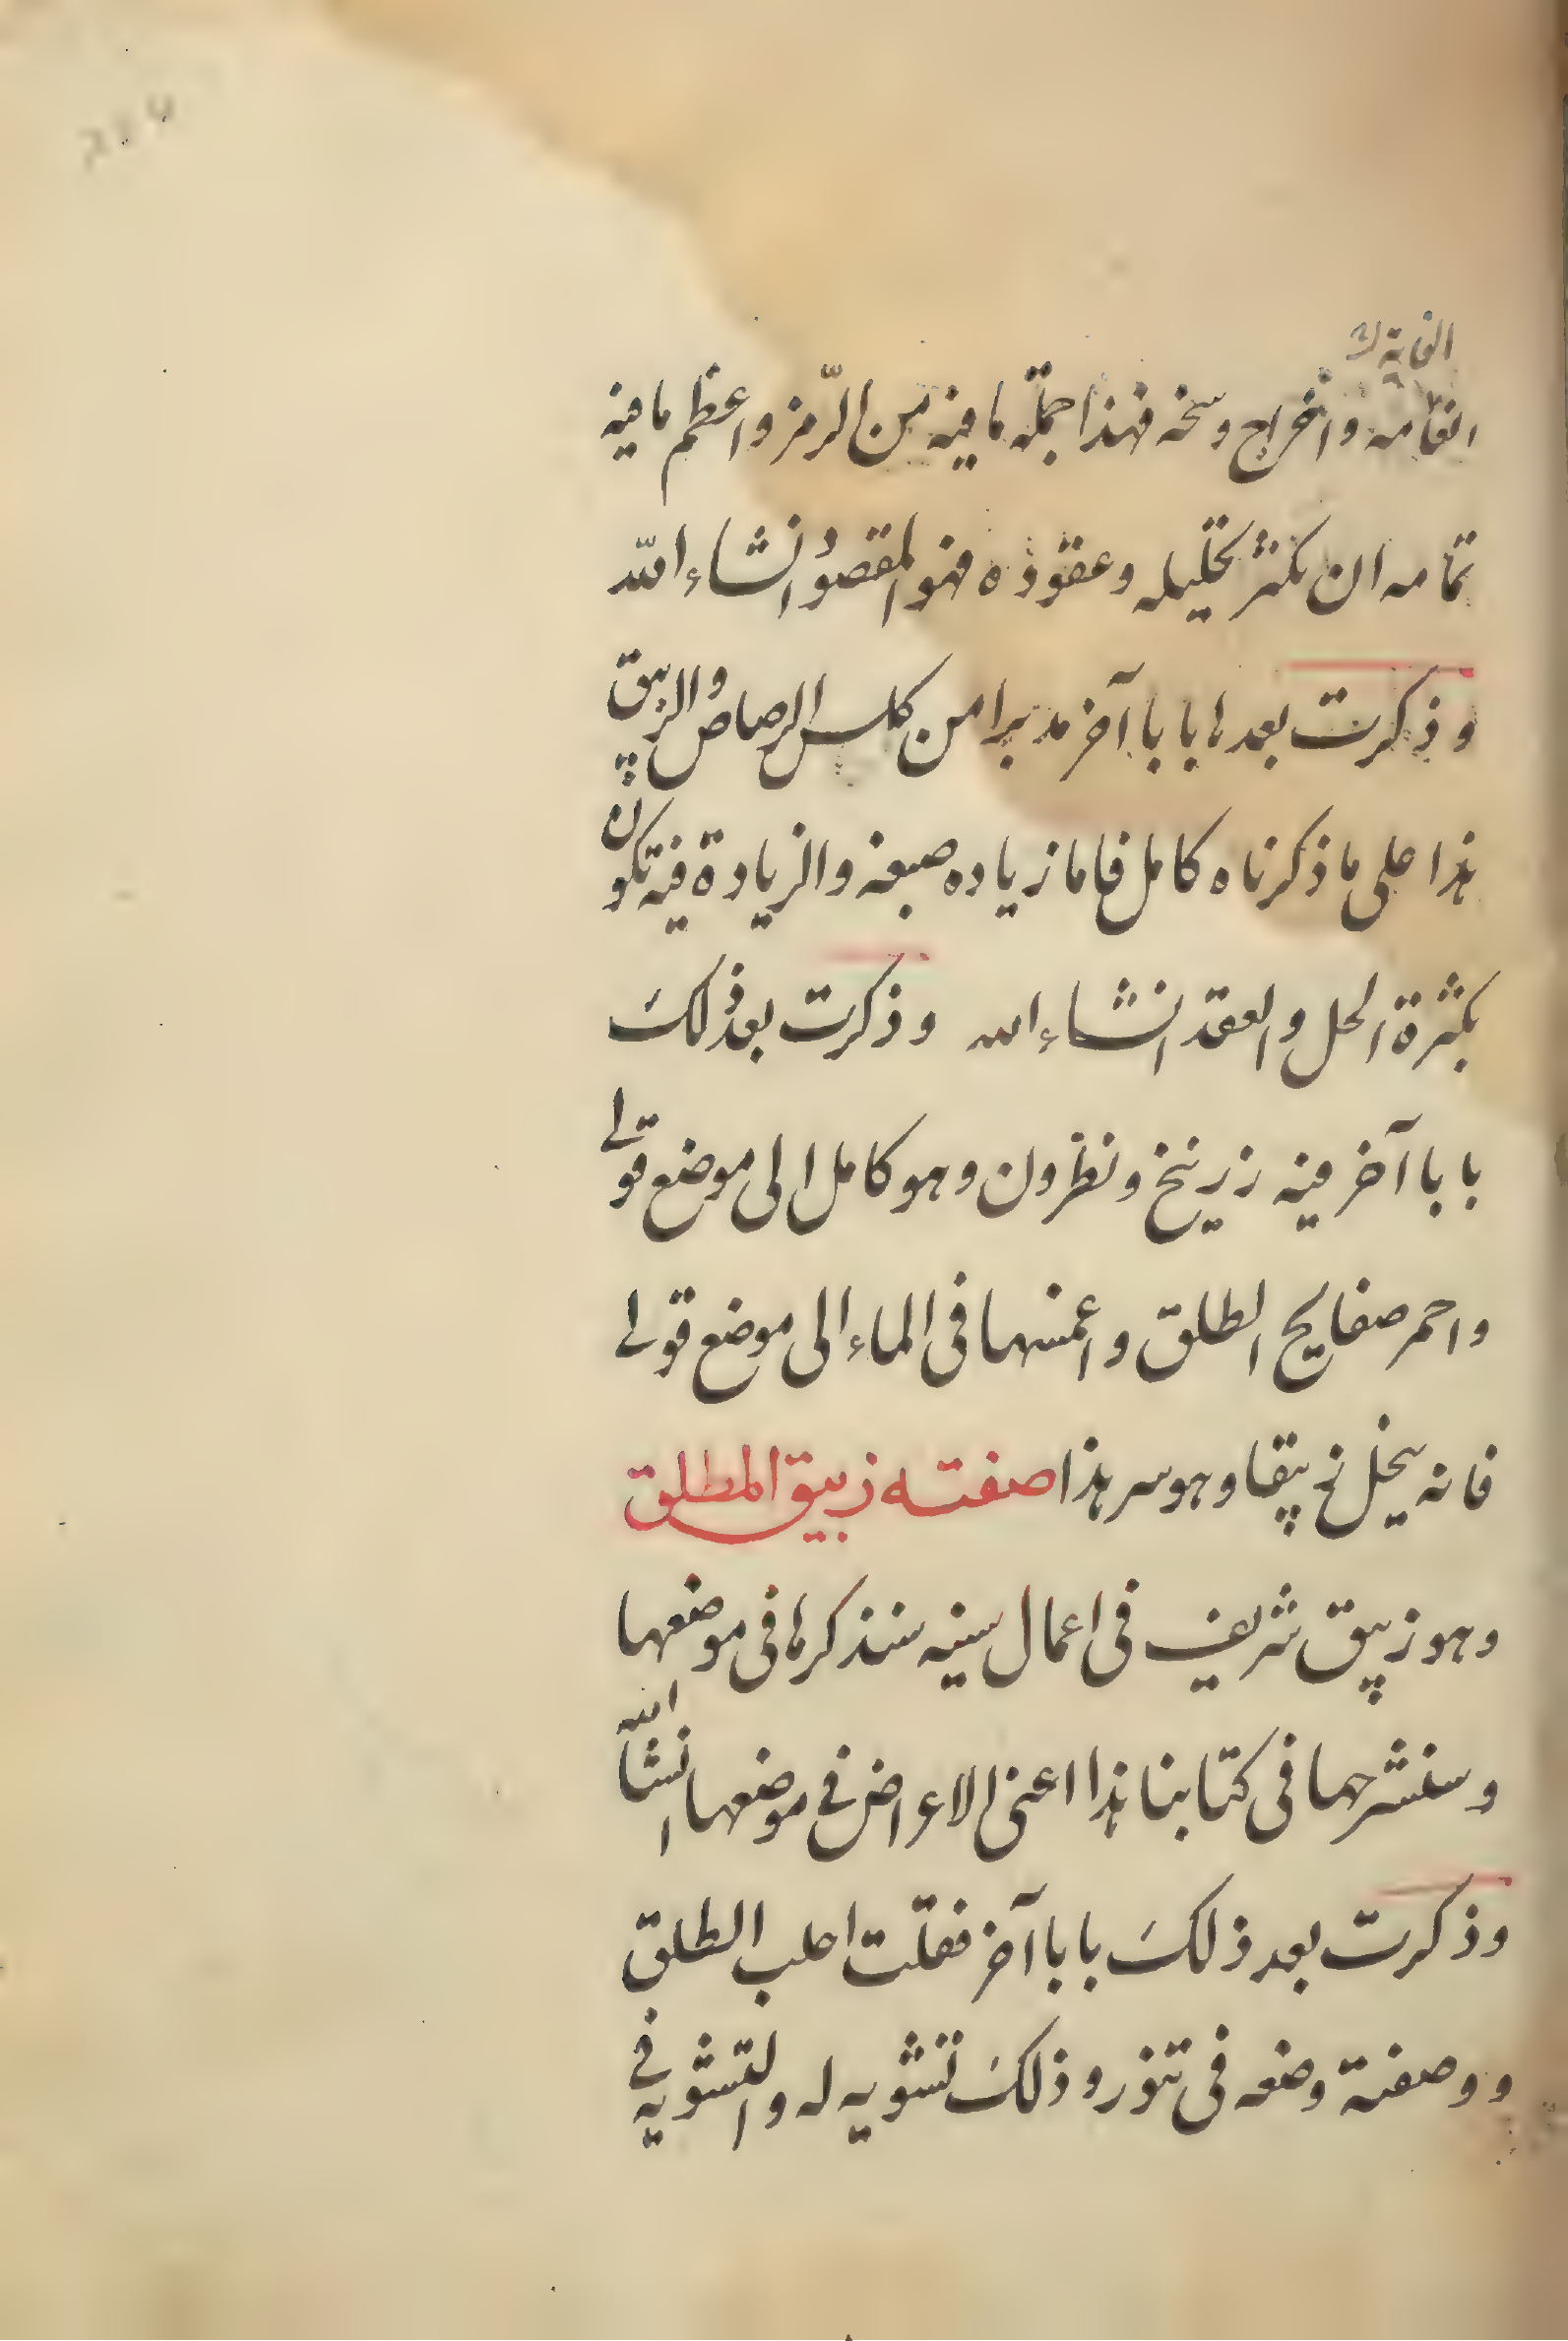 واخراج وسخه فهذا جملة ما فيه من الرمز واعظم ما فيه
تمامه ان يكثر تحليله وعقوده فهو المقصود انشاء الله
وذكرت بعدها بابا آخر مدبرا من كلس الرصاص والزيبق
هذا على ما ذكرناه كامل فاما زياده صبغه والزيادة فيه تكون
بكثرة الحل والعقد انشاء الله وذكرت بعد ذلك
بابا آخر فيه زرنيخ ونطرون وهو كامل الى موضع قولى
واحمر صفايح الطلق واغمسها فى الماء الى موضع قولى
فانه ينحل زيبقا وهو سر هذا صفته زيبق المطلق
وهو زيبق شريف فى اعمال سنيه سنذكرها فى موضعها
وسنشرحها فى كتابنا هذا اعنى الاعراض فى موضعها انشا الله
وذكرت بعد ذلك بابا آخر فقلت احلب الطلق
و وصفته وضعه فى تنور وذلك تشويه له والتشويه فى